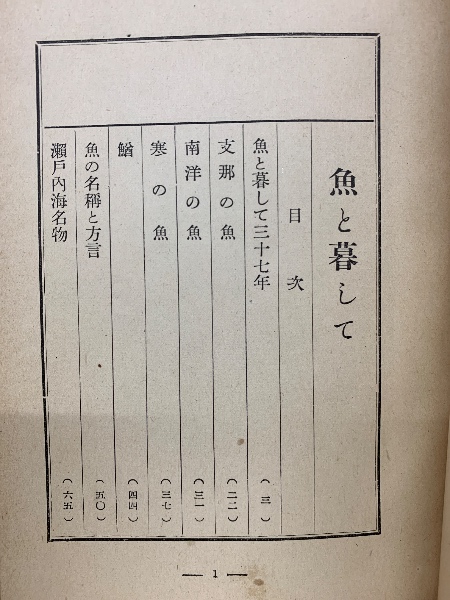 魚と暮して
目次
魚と暮して三十七年 (三)
支那の魚 (二二)
南洋の魚 (三一)
寒の魚 (三七)
鰌 (四四)
魚の名稱と方言 (五〇)
瀨戶內海名物 (六五)
— 1 —